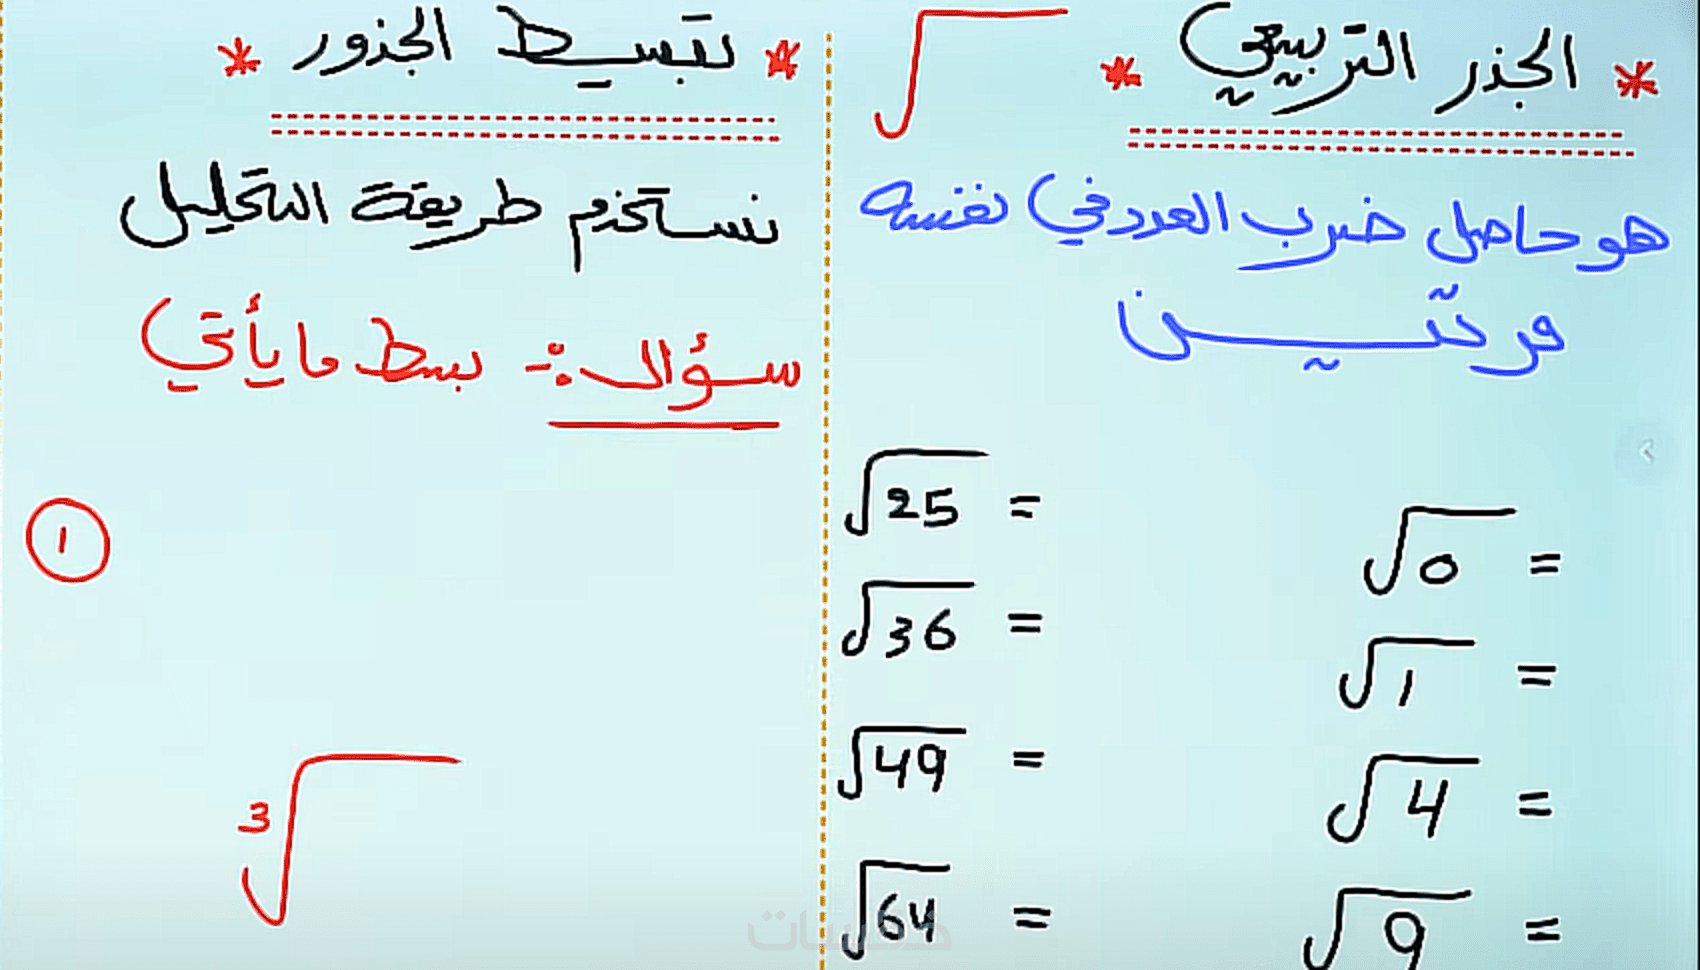 * الجذر التربيعي *
√
هو حاصل ضرب العدد في نفسه
مرتين
√0 =
√1 =
√4 =
√9 =
√25 =
√36 =
√49 =
√64 =
* تبسيط الجذور *
نستخدم طريقة التحليل
سؤال :- بسط ما يأتي
١
3√